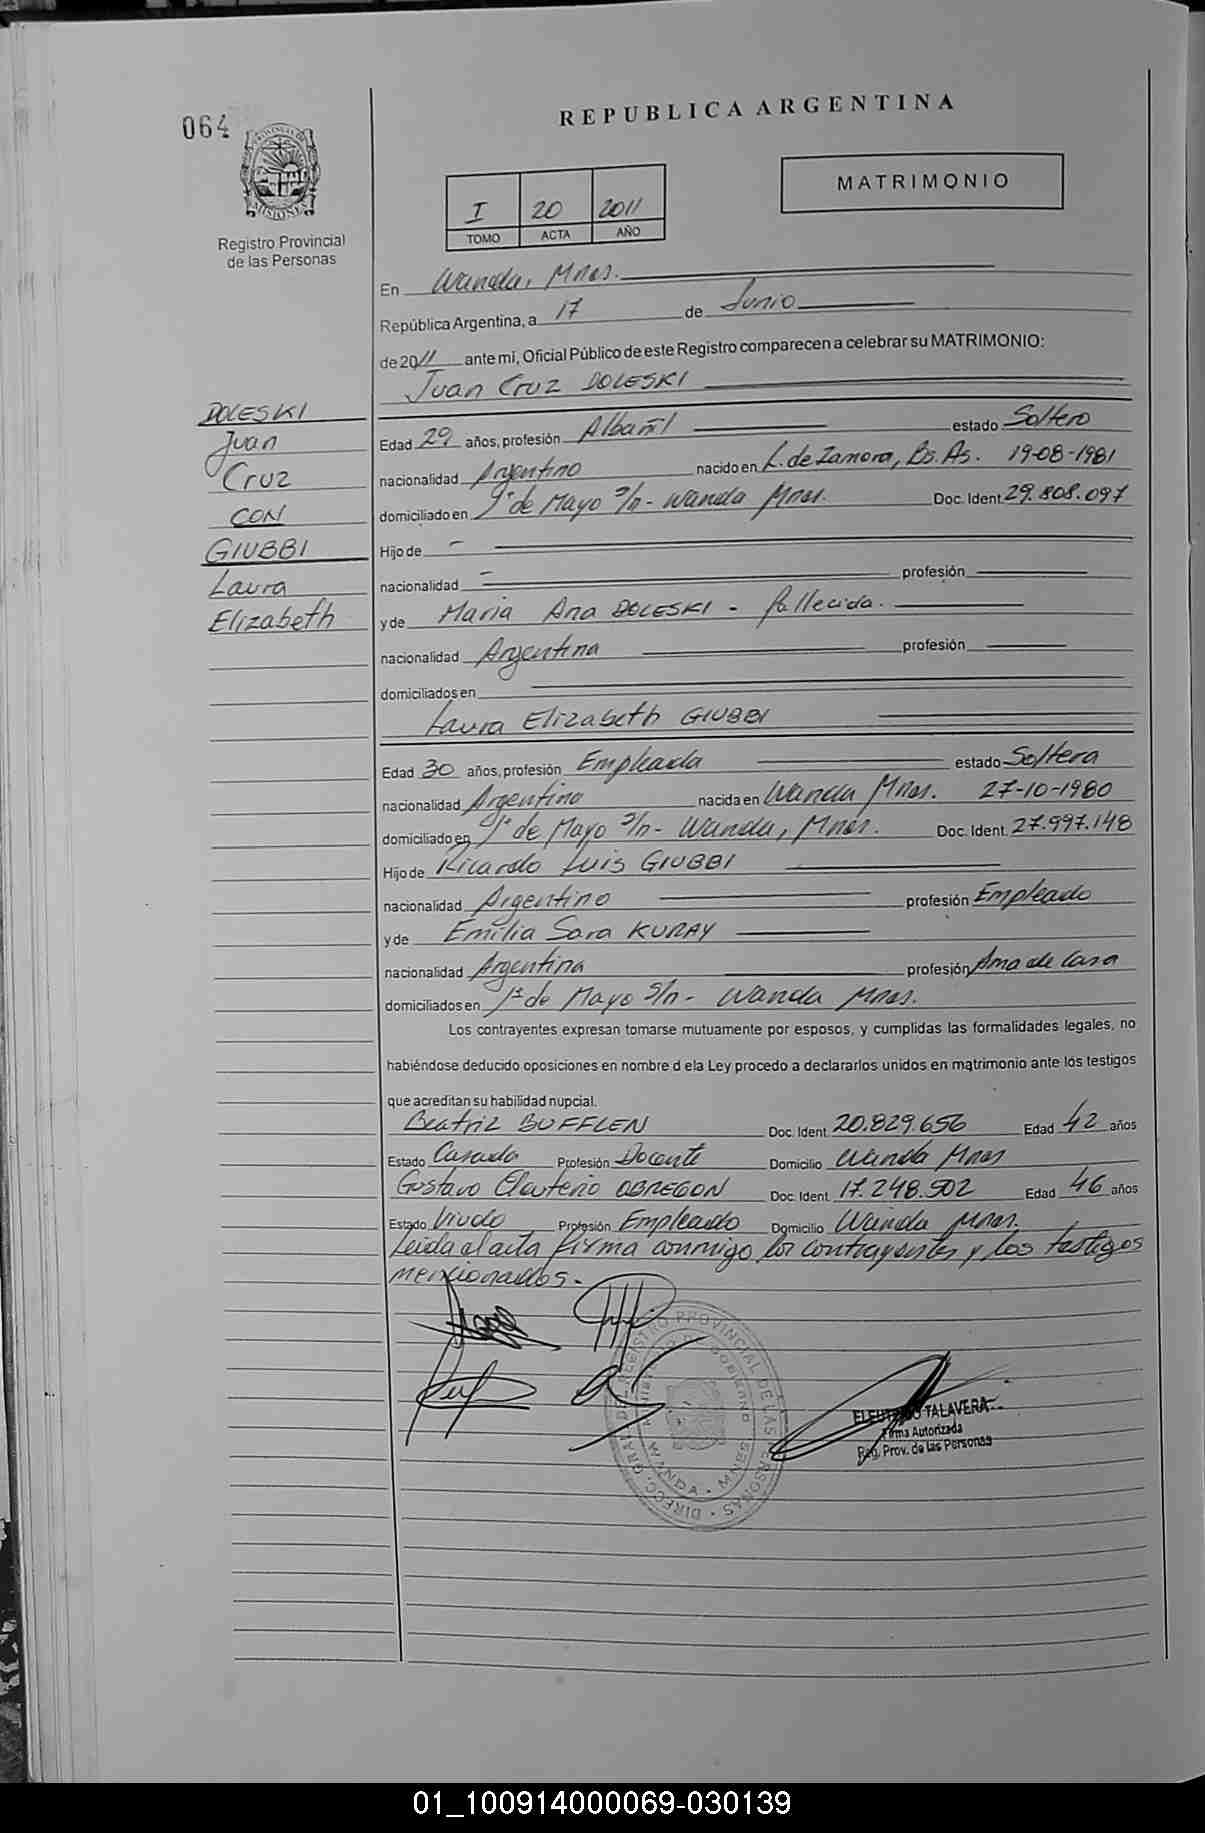 064
PROVINCIA DE
MISIONES
Registro Provincial
de las Personas
REPUBLICA ARGENTINA
MATRIMONIO
I 20 2011
TOMO ACTA AÑO
En Wanda, Mnes.
República Argentina, a 17 de Junio
de 2011 ante mi, Oficial Público de este Registro comparecen a celebrar su MATRIMONIO:
Juan Cruz DOLESKI
DOLESKI
Juan
Cruz
CON
GIUBBI
Laura
Elizabeth
Edad 29 años, profesión Albañil estado Soltero
nacionalidad Argentino nacido en L. de Zamora, Bs. As. 19-08-1981
domiciliado en 1° de Mayo s/n - Wanda Mnes. Doc. Ident. 29.808.097
Hijo de -
nacionalidad - profesión
y de Maria Ana DOLESKI - fallecida.
nacionalidad Argentina profesión
domiciliados en
Laura Elizabeth GIUBBI
Edad 30 años, profesión Empleada estado Soltera
nacionalidad Argentina nacida en Wanda Mnes. 27-10-1980
domiciliado en 1° de Mayo s/n - Wanda, Mnes. Doc. Ident. 27.997.148
Hijo de Ricardo Luis GIUBBI
nacionalidad Argentino profesión Empleado
y de Emilia Sara KURAY
nacionalidad Argentina profesión Ama de Casa
domiciliados en 1° de Mayo S/n - Wanda Mnes.
Los contrayentes expresan tomarse mutuamente por esposos, y cumplidas las formalidades legales, no
habiéndose deducido oposiciones en nombre d ela Ley procedo a declararlos unidos en matrimonio ante los testigos
que acreditan su habilidad nupcial.
Beatriz BUFFLEN Doc. Ident 20.829.656 Edad 42 años
Estado Casada Profesión Docente Domicilio Wanda Mnes
Gustavo Eleuterio OBREGON Doc. Ident. 17.248.502 Edad 46 años
Estado Viudo Profesión Empleado Domicilio Wanda Mnes.
Leida el acta firma conmigo los contrayentes y los testigos
mencionados.-
ELEUTERIO TALAVERA
Firma Autorizada
Reg. Prov. de las Personas
01_100914000069-030139